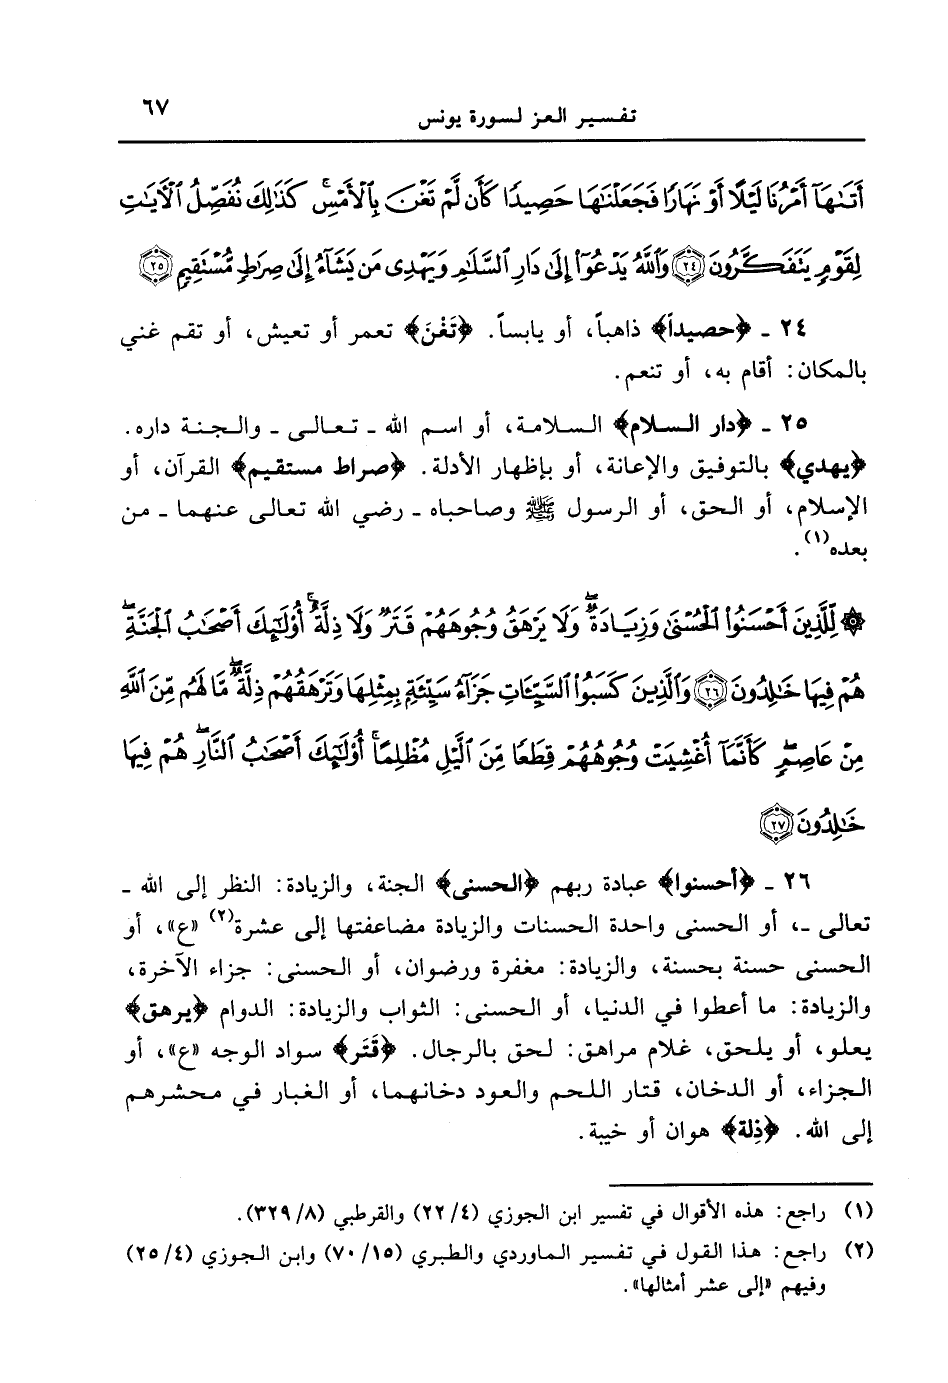 تفسير العز لسورة يونس ٦٧
أَتَىٰهَآ أَمْرُنَا لَيْلًا أَوْ نَهَارًا فَجَعَلْنَٰهَا حَصِيدًا كَأَن لَّمْ تَغْنَ بِٱلْأَمْسِ ۚ كَذَٰلِكَ نُفَصِّلُ ٱلْءَايَٰتِ
لِقَوْمٍ يَتَفَكَّرُونَ ٢٤ وَٱللَّهُ يَدْعُوٓا۟ إِلَىٰ دَارِ ٱلسَّلَٰمِ وَيَهْدِى مَن يَشَآءُ إِلَىٰ صِرَٰطٍ مُّسْتَقِيمٍ ٢٥
٢٤ ـ ﴿حصيداً﴾ ذاهباً، أو يابساً. ﴿تَغْنَ﴾ تعمر أو تعيش، أو تقم غني
بالمكان: أقام به، أو تنعم.
٢٥ ـ ﴿دار السلام﴾ السلامة، أو اسم الله ـ تعالى ـ والجنة داره.
﴿يهدي﴾ بالتوفيق والإعانة، أو بإظهار الأدلة. ﴿صراط مستقيم﴾ القرآن، أو
الإسلام، أو الحق، أو الرسول ﷺ وصاحباه ـ رضي الله تعالى عنهما ـ من
بعده(١).
۞ لِّلَّذِينَ أَحْسَنُوا۟ ٱلْحُسْنَىٰ وَزِيَادَةٌ ۖ وَلَا يَرْهَقُ وُجُوهَهُمْ قَتَرٌ وَلَا ذِلَّةٌ ۚ أُو۟لَٰٓئِكَ أَصْحَٰبُ ٱلْجَنَّةِ ۖ
هُمْ فِيهَا خَٰلِدُونَ ٢٦ وَٱلَّذِينَ كَسَبُوا۟ ٱلسَّيِّـَٔاتِ جَزَآءُ سَيِّئَةٍۭ بِمِثْلِهَا وَتَرْهَقُهُمْ ذِلَّةٌ ۖ مَّا لَهُم مِّنَ ٱللَّهِ
مِنْ عَاصِمٍ ۖ كَأَنَّمَآ أُغْشِيَتْ وُجُوهُهُمْ قِطَعًا مِّنَ ٱلَّيْلِ مُظْلِمًا ۚ أُو۟لَٰٓئِكَ أَصْحَٰبُ ٱلنَّارِ ۖ هُمْ فِيهَا
خَٰلِدُونَ ٢٧
٢٦ ـ ﴿أحسنوا﴾ عبادة ربهم ﴿الحسنى﴾ الجنة، والزيادة: النظر إلى الله ـ
تعالى ـ، أو الحسنى واحدة الحسنات والزيادة مضاعفتها إلى عشرة(٢) «ع»، أو
الحسنى حسنة بحسنة، والزيادة: مغفرة ورضوان، أو الحسنى: جزاء الآخرة،
والزيادة: ما أعطوا في الدنيا، أو الحسنى: الثواب والزيادة: الدوام ﴿يرهق﴾
يعلو، أو يلحق، غلام مراهق: لحق بالرجال. ﴿قَتَر﴾ سواد الوجه «ع»، أو
الجزاء، أو الدخان، قتار اللحم والعود دخانهما، أو الغبار في محشرهم
إلى الله. ﴿ذِلة﴾ هوان أو خيبة.
(١) راجع: هذه الأقوال في تفسير ابن الجوزي (٤/ ٢٢) والقرطبي (٨/ ٣٢٩).
(٢) راجع: هذا القول في تفسير الماوردي والطبري (١٥/ ٧٠) وابن الجوزي (٤/ ٢٥)
وفيهم «إلى عشر أمثالها».